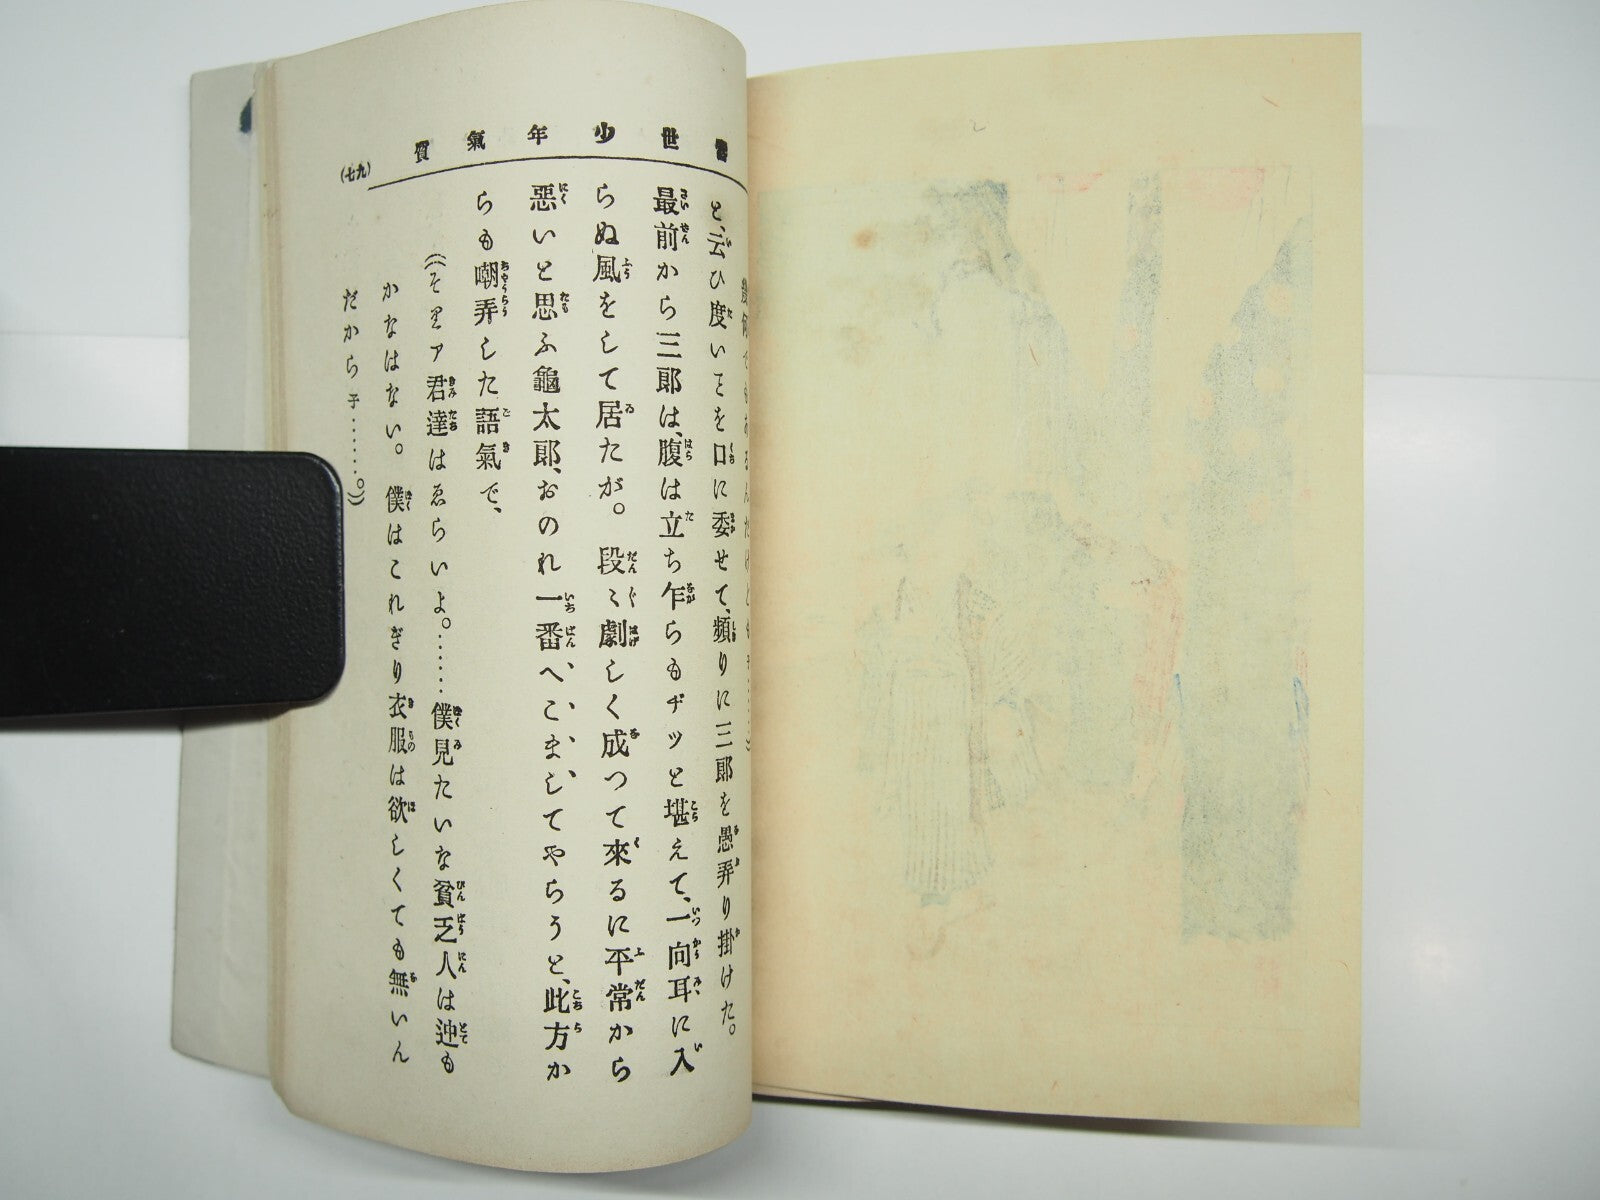 當世少年氣質
と、云ひ度いヿを口に委せて、頻りに三郎を愚弄り掛けた。
最前から三郎は、腹は立ち乍らもヂッと堪えて、一向耳に入
らぬ風をして居たが。段々劇しく成つて來るに平常から
惡いと思ふ龜太郎、おのれ一番へこましてやらうと、此方か
らも嘲弄した語氣で、
《そりァ君達はゑらいよ。……僕見たいな貧乏人は迚も
かなはない。僕はこれぎり衣服は欲しくても無いん
だから子……。》
(九七)